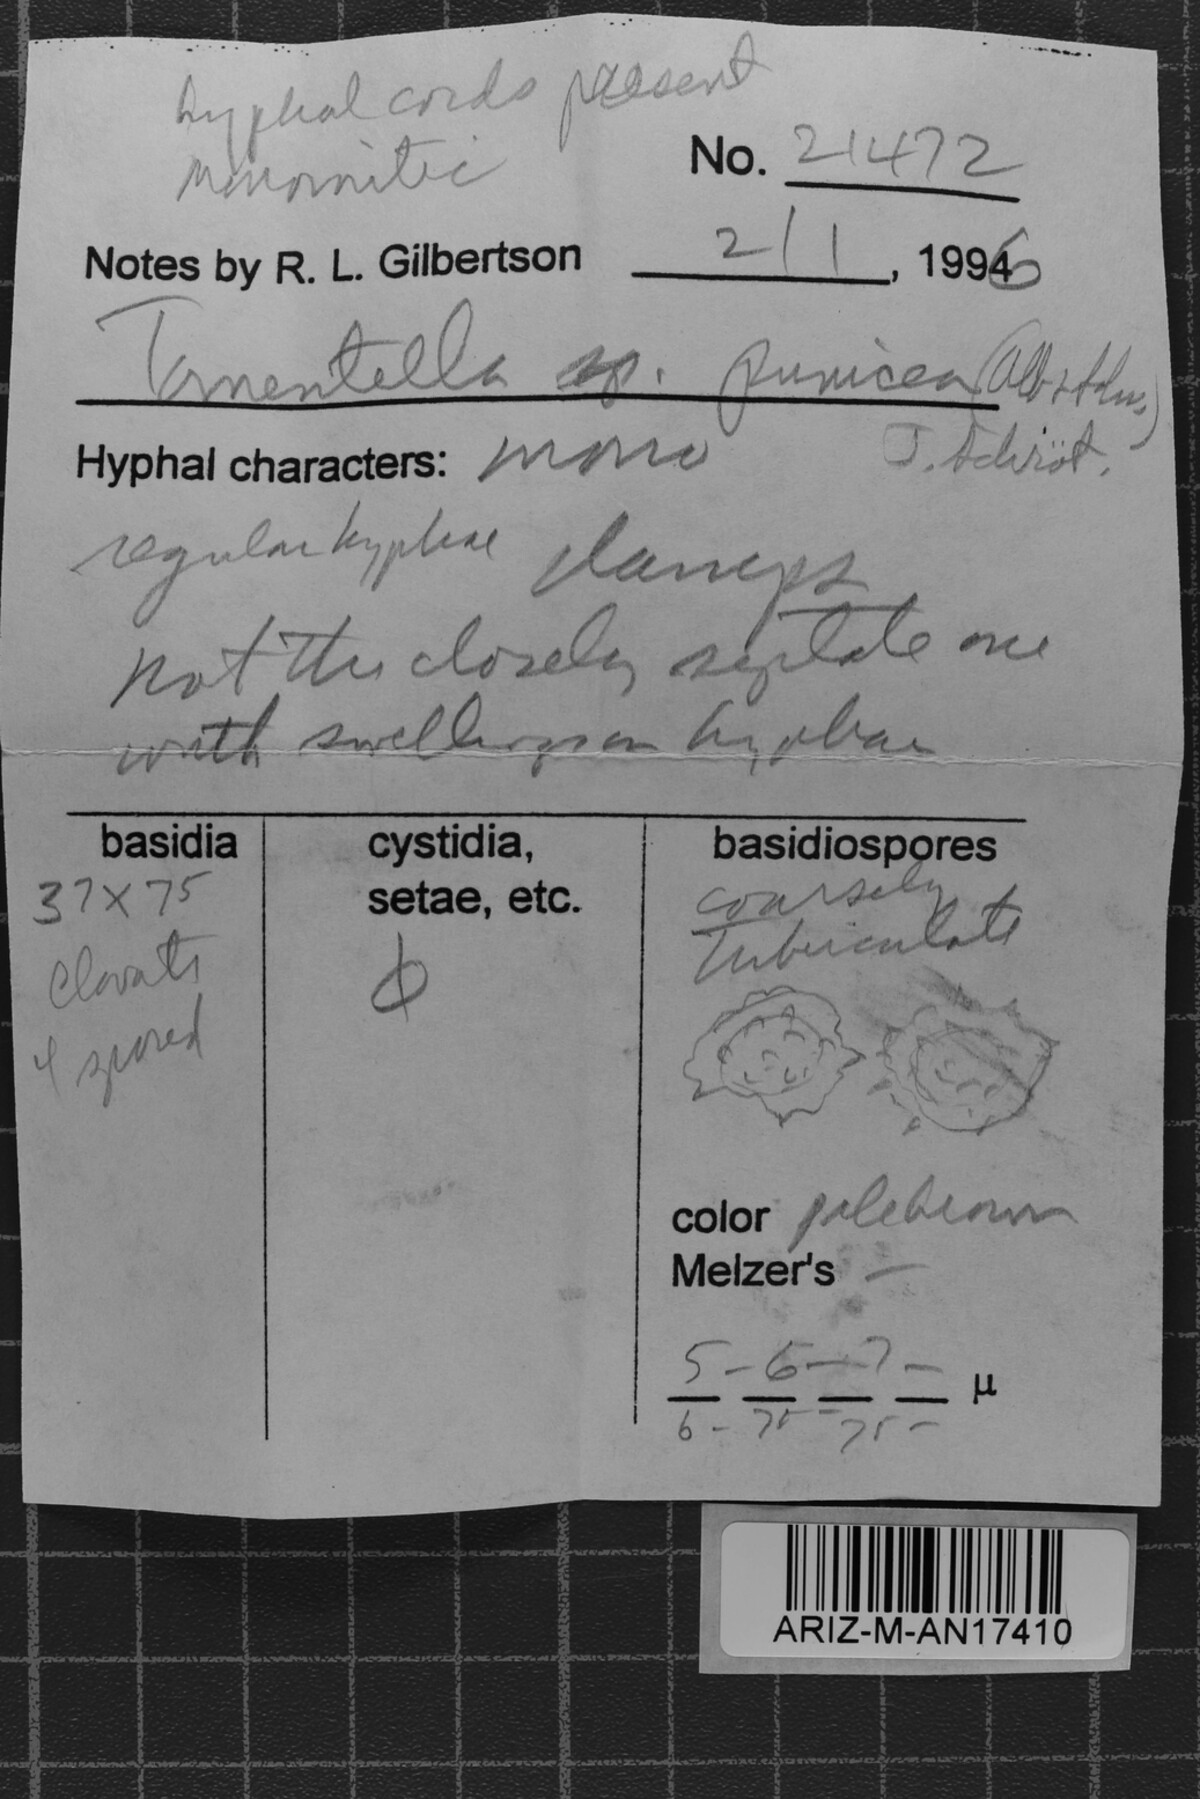 hyphal cords present
monomitic
No. 21472
Notes by R. L. Gilbertson 2/1, 1996
Tomentella sp. punicea (Alb. & Schw.)
J. Schröt.
Hyphal characters: mono
regular hyphae clamps
not the closely septate one
with swellings on hyphae
basidia
37 x 75
clavate
4 spored
cystidia,
setae, etc.
ϕ
basidiospores
coarsely
tuberculate
color pale brown
Melzer's –
5 – 6 – 7 –
μ
6 – 75 – 75 –
ARIZ-M-AN17410